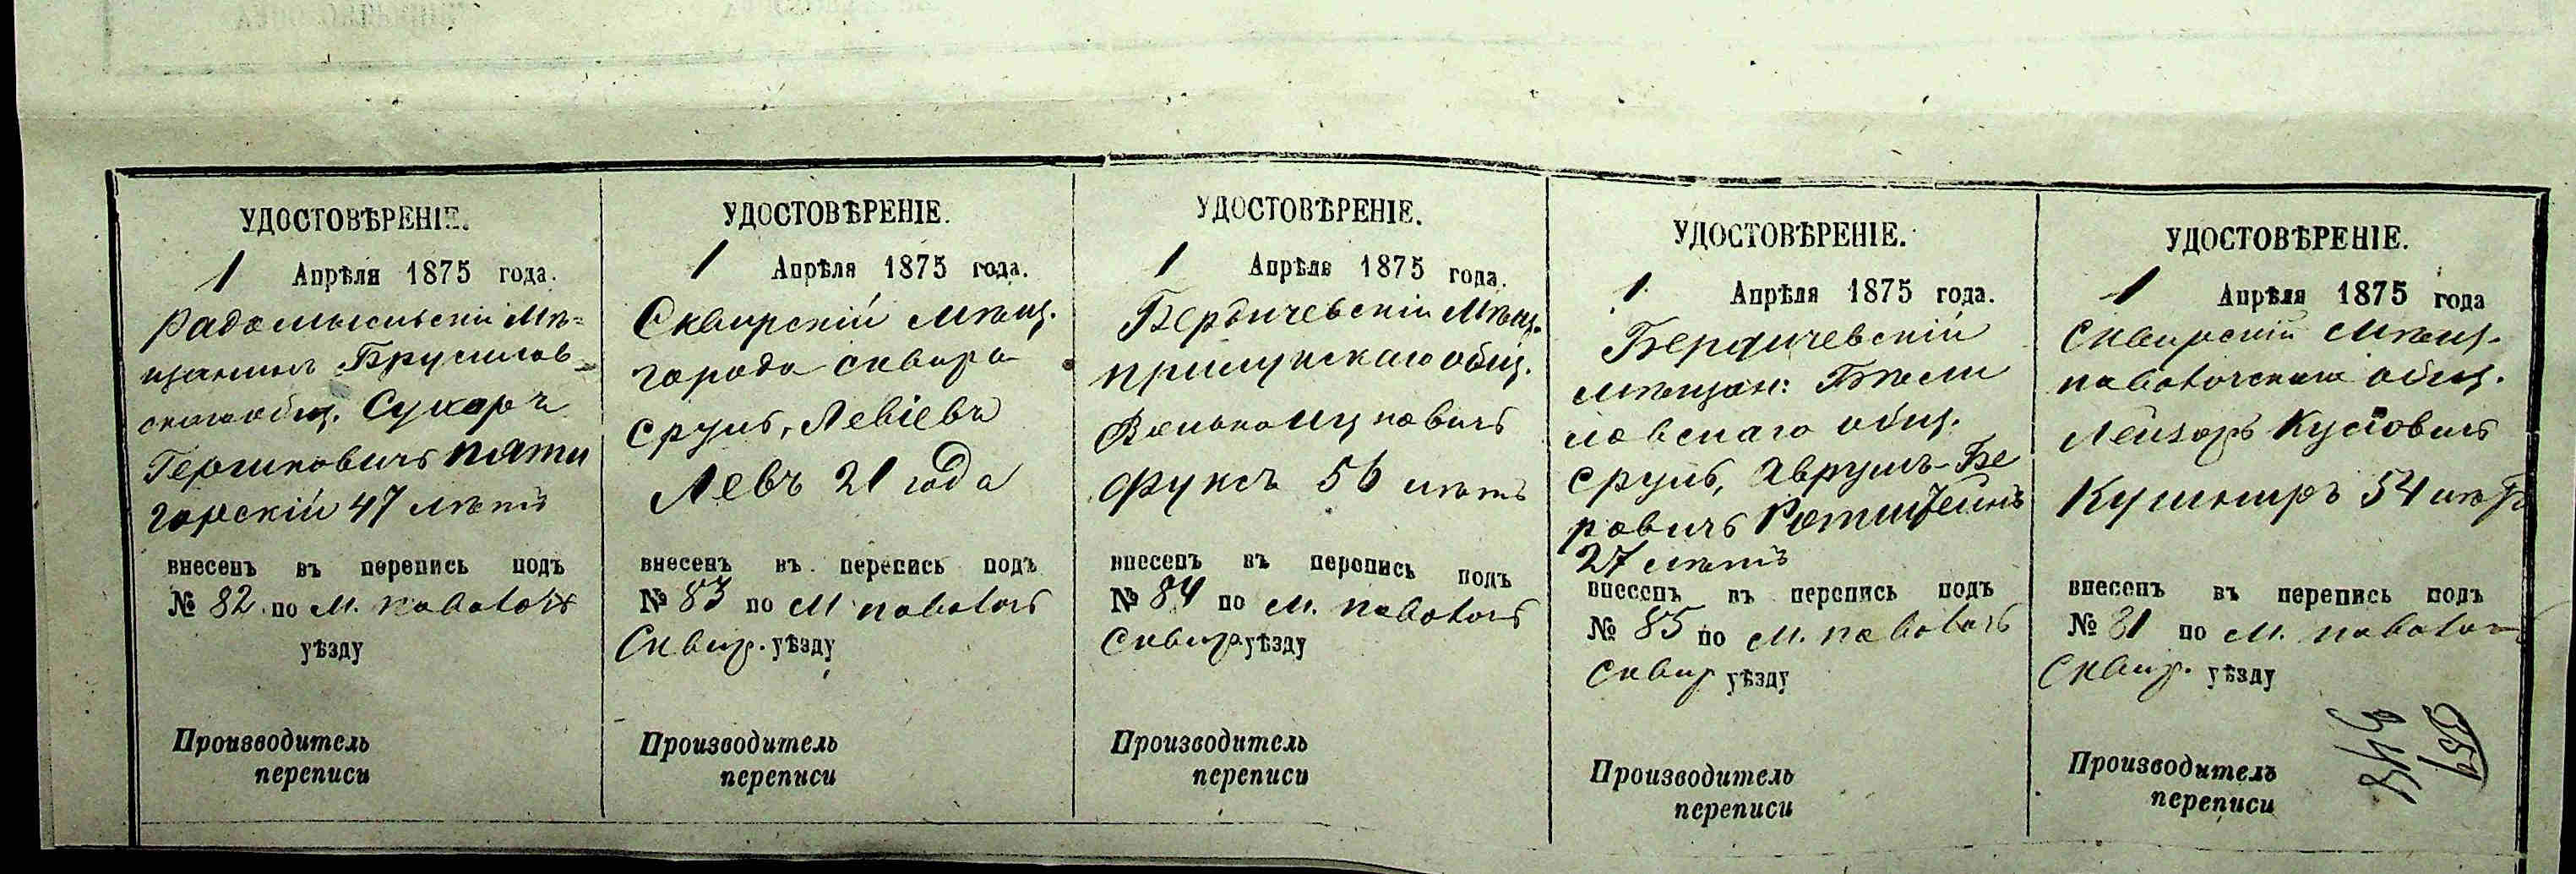 УДОСТОВѢРЕНІЕ.
1 Апрѣля 1875 года.
Радомысльскій Мѣ-
щанинъ Брусилов-
скаго общ. Сухоръ
Гершковичъ Пяти
горскій 47 лѣтъ
внесенъ въ перепись подъ
№ 82 по М. Паволочь
уѣзду
Производитель
переписи
УДОСТОВѢРЕНІЕ.
1 Апрѣля 1875 года.
Сквирскій мѣщ.
города Сквира
Сруль, Левіевъ
Левъ 21 года
внесенъ въ перепись подъ
№ 83 по М Паволочь
Сквир. уѣзду
Производитель
переписи
УДОСТОВѢРЕНІЕ.
1 Апрѣля 1875 года.
Бердичевскій Мѣщ.
прилукскаго общ.
Фуксъ 56 лѣтъ
внесенъ въ перепись подъ
№ 84 по М. Паволочь
Сквир. уѣзду
Производитель
переписи
УДОСТОВѢРЕНІЕ.
1 Апрѣля 1875 года.
Бердичевскій
мѣщан: Бѣли
ловскаго общ.
Сруль, Аврумъ-Бе
ровичъ Ротштейнъ
27 лѣтъ
внесенъ въ перепись подъ
№ 85 по М. Паволочь
Сквир уѣзду
Производитель
переписи
УДОСТОВѢРЕНІЕ.
1 Апрѣля 1875 года
Сквирскій мѣщ.
паволочскаго общ.
Лейзоръ Кусіовичъ
Кушниръ 54 лѣтъ
внесенъ въ перепись подъ
№ 81 по М. Паволочь
Сквир. уѣзду
Производитель
переписи